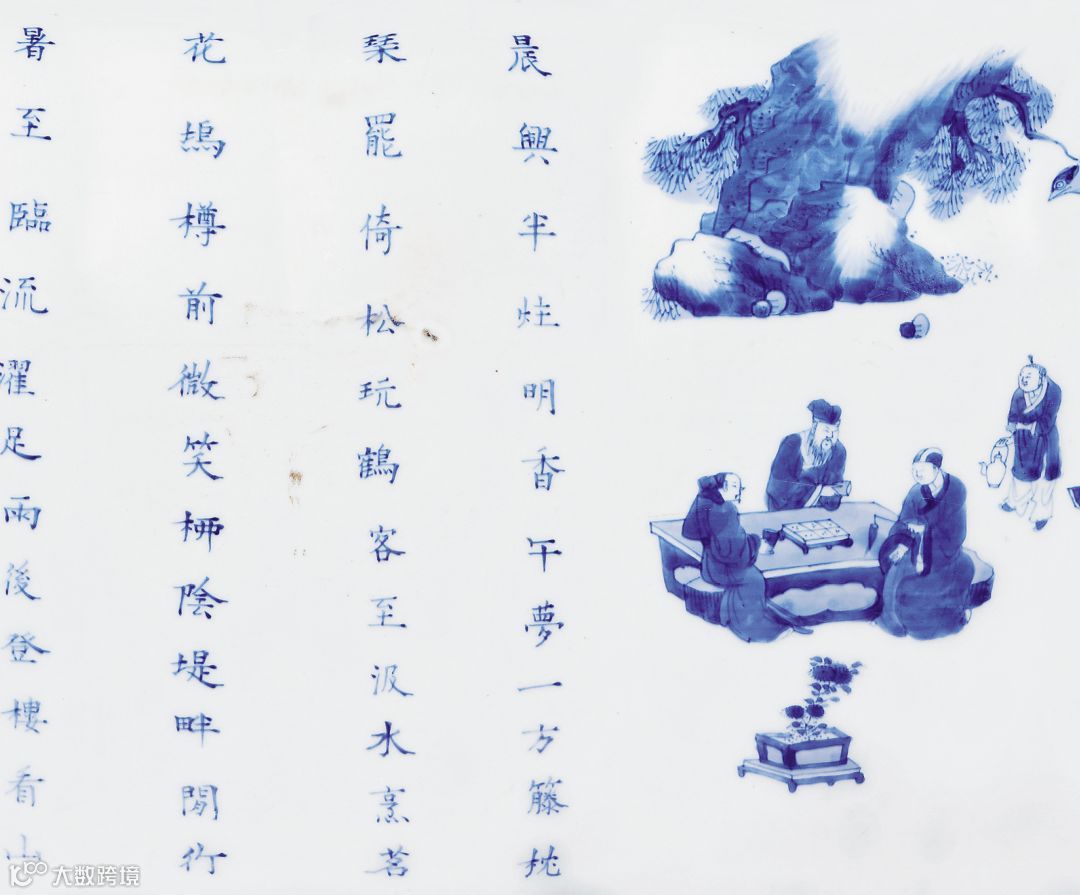 晨興半炷明香午夢一方籐枕
琹罷倚松玩鶴客至汲水烹茗
花塢樽前微笑栁陰堤畔閒行
暑至臨流濯足雨後登樓看山
大数跨境